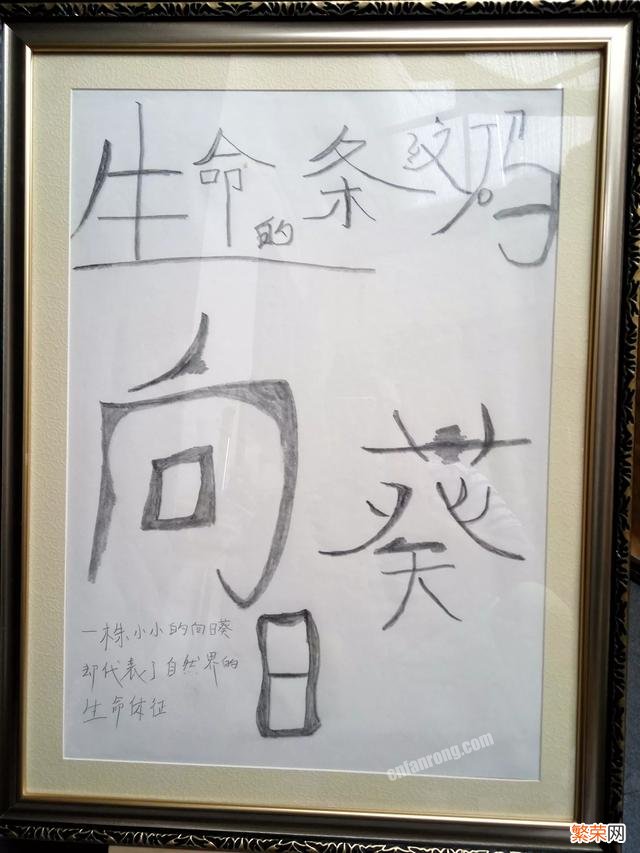 生命的条纹码
向日葵
一株小小的向日葵
却代表了自然界的
生命体征
enfanrong.com
繁荣网